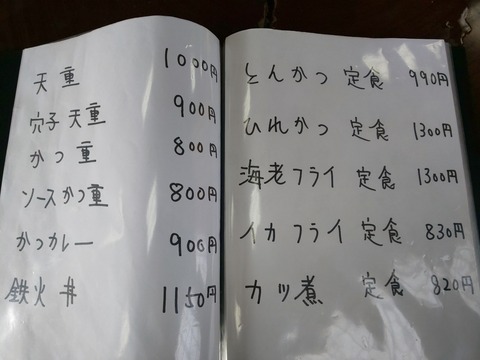 天重 1000円
穴子天重 900円
かつ重 800円
ソースかつ重 800円
かつカレー 900円
鉄火丼 1150円
とんかつ 定食 990円
ひれかつ 定食 1300円
海老フライ 定食 1300円
イカフライ 定食 830円
カツ煮 定食 820円